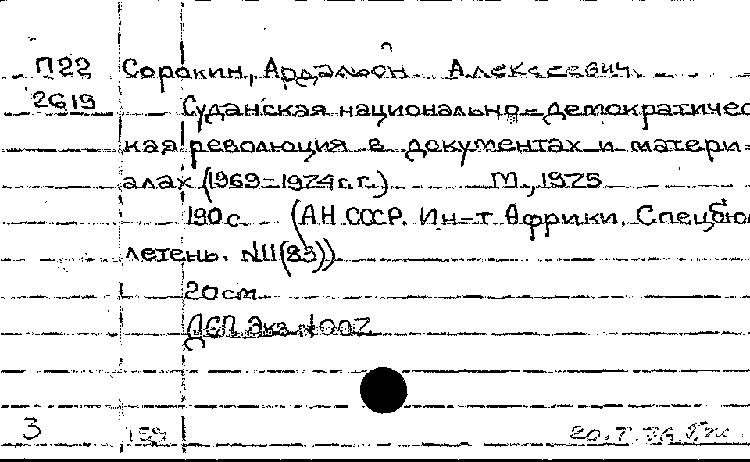 П22 Сорокин, Ардальон Алексеевич.
2619 Суданская национально-демократичес
кая революция в документах и матери-
алах (1969-1974г.г.) М., 1975
190 с (АН СССР. Ин-т Африки. Спецбюл
летень. №11(83))
20 см.
ДСП Экз. №007
3 159